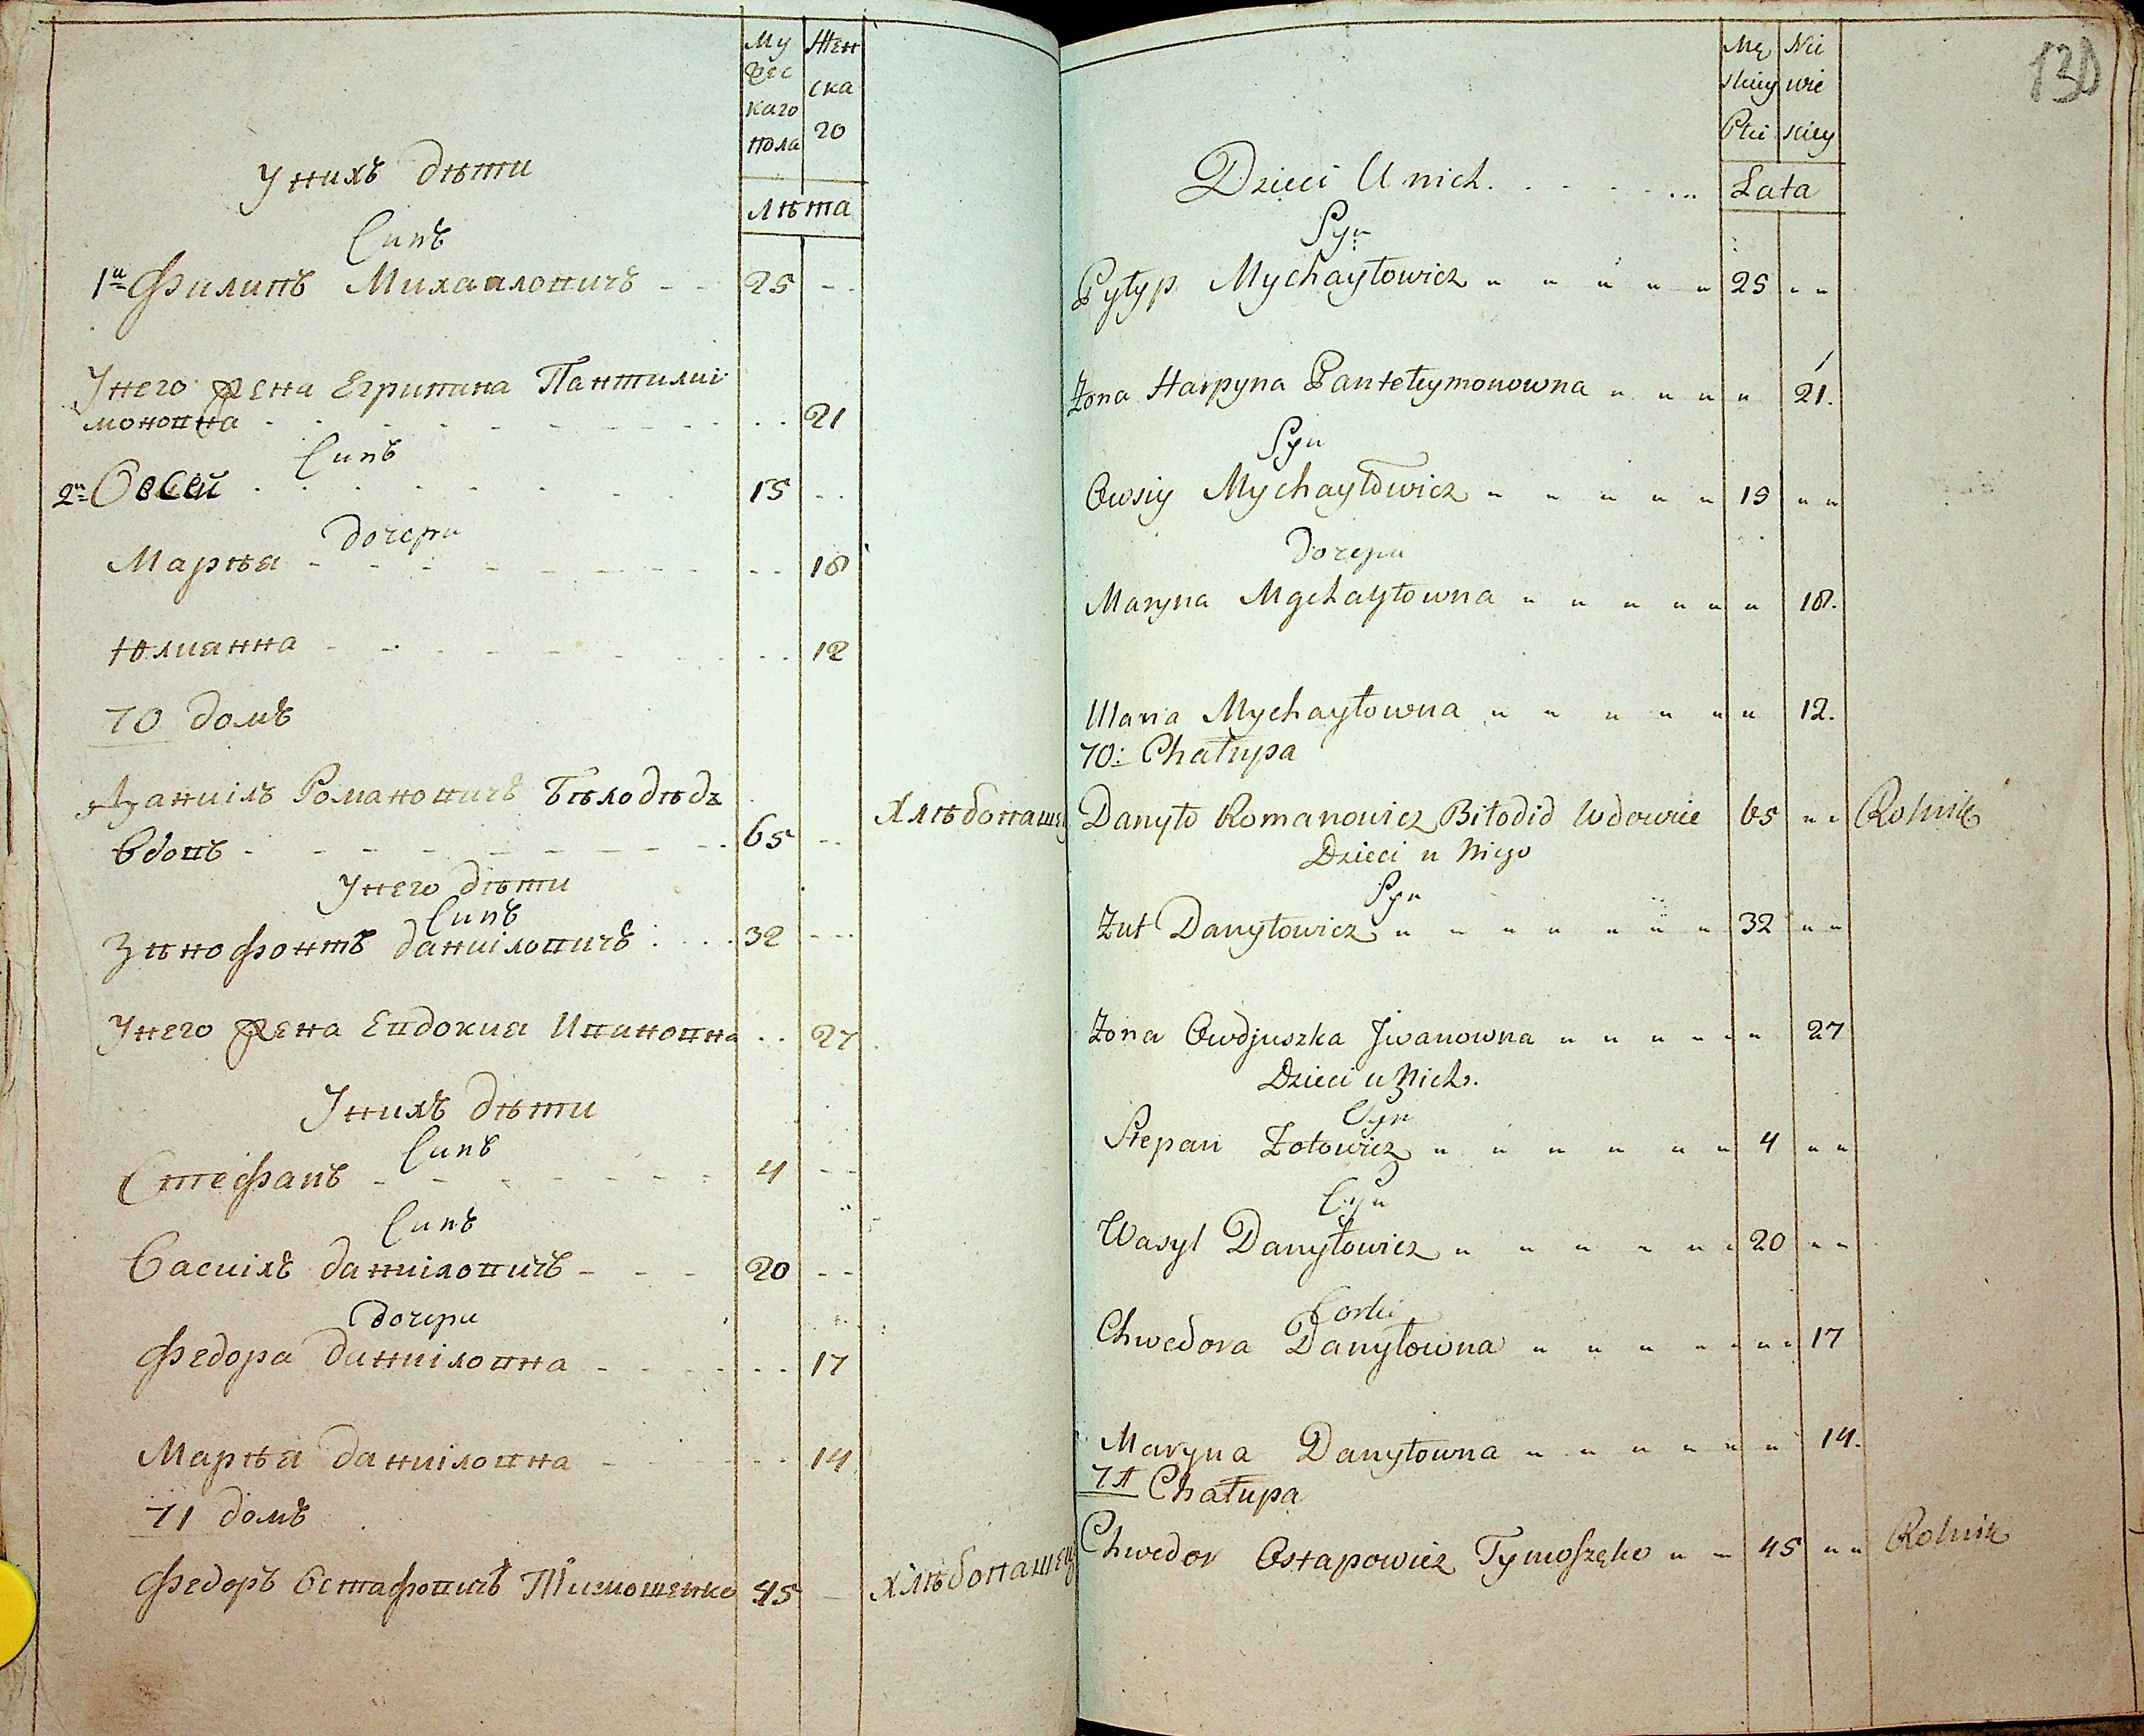 Му Жен
жес ска
каго го
пола
лѣта
У нихъ дѣти
Синъ
1й Филипъ Михаиловичъ 25
У него жена Егрипина Пантили
моновна 21
Синъ
2й Овсей 15
дочери
Марья 18
Юлианна 12
70 домъ
Даниілъ Романовичъ Бѣлодѣдъ
вдовъ 65 Хлѣбопашец
У него дѣти
Синъ
Зѣнофонтъ Даниіловичъ 32
У него жена Евдокия Ивановна 27
У нихъ дѣти
Синъ
Стефанъ 4
Синъ
Василъ Даниіловичъ 20
дочери
Федора Даниіловна 17
Марья Даниіловна 14
71 домъ
Федоръ Остафовичъ Тимошенко 45 Хлѣбопашец
130
Mę Nie
skiey wie
Płci skiey
Lata
Dzieci U nich
Syn
Pyłyp Mychayłowicz 25
Żona Harpyna Pantełeymonowna 21.
Syn
Owsiy Mychayłowicz 15
дочери
Maryna Mychayłowna 18.
Ulana Mychayłowna 12.
70: Chałupa
Danyło Romanowicz Biłodid Wdowiec 65 Rolnik
Dzieci u Niego
Syn
Zut Danyłowicz 32
Żona Owdjuszka Jwanowna 27
Dzieci u Nich.
Syn
Stepan Zotowicz 4
Syn
Wasyl Danyłowicz 20
Corki
Chwedora Danyłowna 17
Maryna Danyłowna 14.
71 Chałupa
Chwedor Ostapowicz Tymoszęko 45 Rolnik